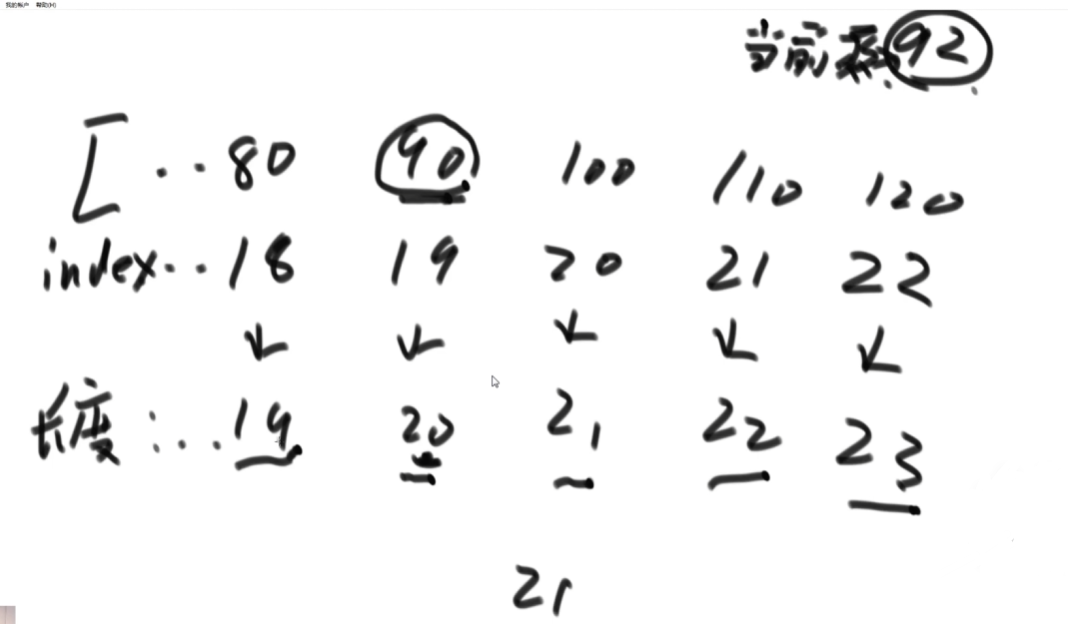 我的帐户 帮助(H)
当前系: 92
[ .. 80 90 100 110 120
index.. 18 19 20 21 22
长度: .. 19 20 21 22 23
21